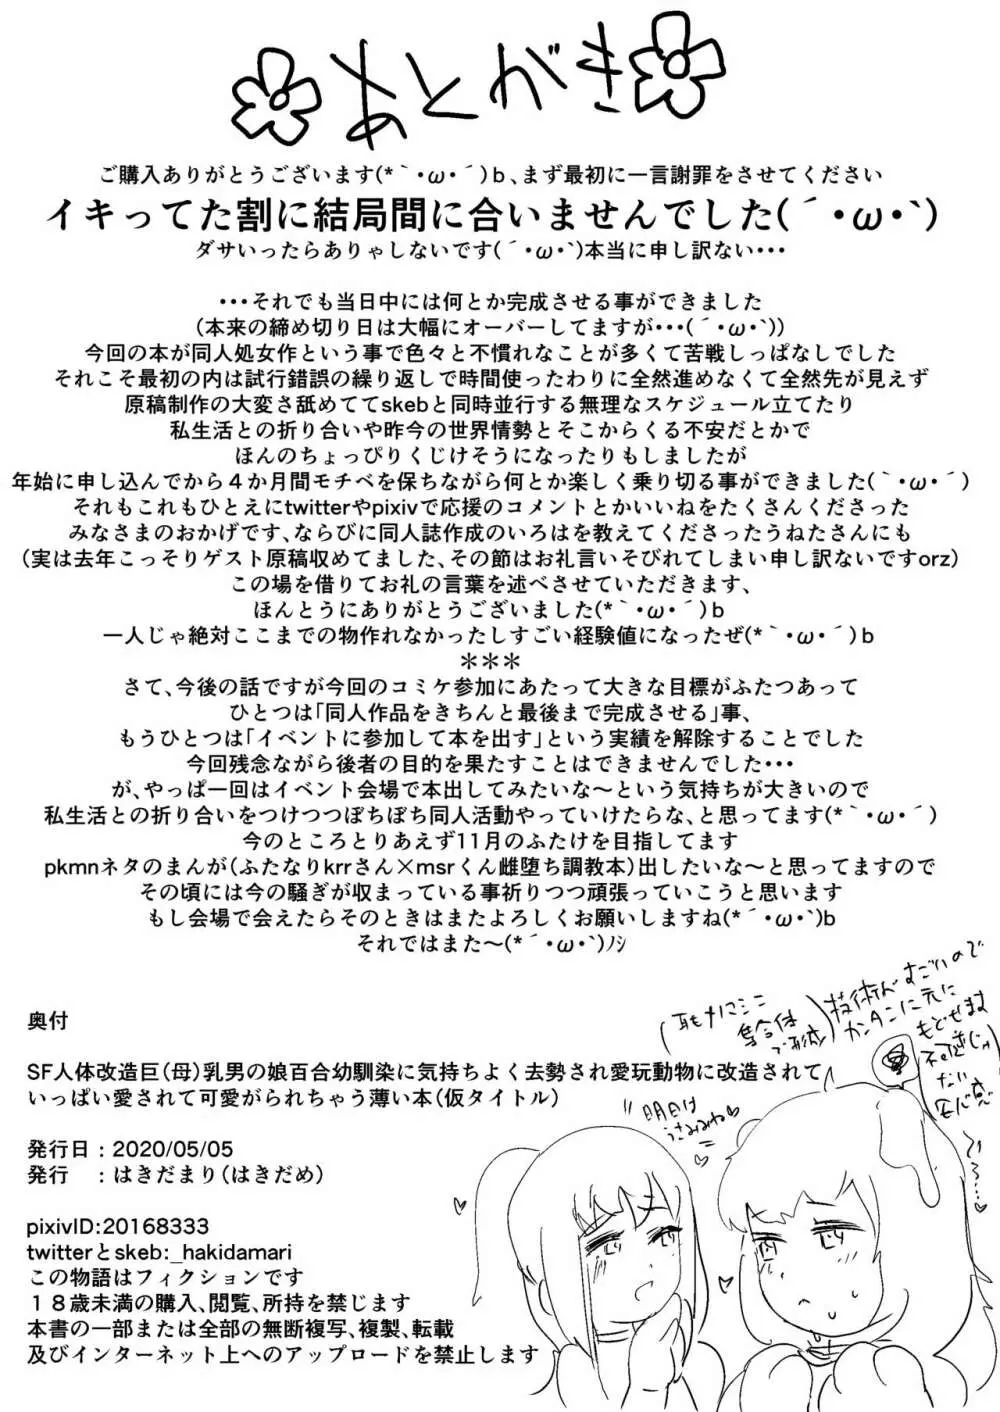 あとがき
ご購入ありがとうございます(*｀･ω･´)ｂ、まず最初に一言謝罪をさせてください
イキってた割に結局間に合いませんでした(´･ω･`)
ダサいったらありゃしないです(´･ω･`)本当に申し訳ない･･･
･･･それでも当日中には何とか完成させる事ができました
(本来の締め切り日は大幅にオーバーしてますが･･･(´･ω･`))
今回の本が同人処女作という事で色々と不慣れなことが多くて苦戦しっぱなしでした
それこそ最初の内は試行錯誤の繰り返しで時間使ったわりに全然進めなくて全然先が見えず
原稿制作の大変さ舐めててskebと同時並行する無理なスケジュール立てたり
私生活との折り合いや昨今の世界情勢とそこからくる不安だとかで
ほんのちょっぴりくじけそうになったりもしましたが
年始に申し込んでから４か月間モチベを保ちながら何とか楽しく乗り切る事ができました(｀･ω･´)
それもこれもひとえにtwitterやpixivで応援のコメントとかいいねをたくさんくださった
みなさまのおかげです、ならびに同人誌作成のいろはを教えてくださったうねたさんにも
(実は去年こっそりゲスト原稿収めてました、その節はお礼言いそびれてしまい申し訳ないですorz)
この場を借りてお礼の言葉を述べさせていただきます、
ほんとうにありがとうございました(*｀･ω･´)ｂ
一人じゃ絶対ここまでの物作れなかったしすごい経験値になったぜ(*｀･ω･´)ｂ
＊＊＊
さて、今後の話ですが今回のコミケ参加にあたって大きな目標がふたつあって
ひとつは「同人作品をきちんと最後まで完成させる」事、
もうひとつは「イベントに参加して本を出す」という実績を解除することでした
今回残念ながら後者の目的を果たすことはできませんでした･･･
が、やっぱ一回はイベント会場で本出してみたいな～という気持ちが大きいので
私生活との折り合いをつけつつぼちぼち同人活動やっていけたらな、と思ってます(*｀･ω･´)
今のところとりあえず11月のふたけを目指してます
pkmnネタのまんが(ふたなりkrrさん×msrくん雌堕ち調教本)出したいな～と思ってますので
その頃には今の騒ぎが収まっている事祈りつつ頑張っていこうと思います
もし会場で会えたらそのときはまたよろしくお願いしますね(*´･ω･`)b
それではまた～(*´･ω･`)ﾉｼ
技術がすごいので
カンタンに元に
もどせます
耳もナノマシン
集合体
で形成
不可逆じゃ
ない
安心感
明日は
うさみみね
奥付
SF人体改造巨(母)乳男の娘百合幼馴染に気持ちよく去勢され愛玩動物に改造されて
いっぱい愛されて可愛がられちゃう薄い本(仮タイトル)
発行日：2020/05/05
発行　：はきだまり(はきだめ)
pixivID:20168333
twitterとskeb:_hakidamari
この物語はフィクションです
１８歳未満の購入、閲覧、所持を禁じます
本書の一部または全部の無断複写、複製、転載
及びインターネット上へのアップロードを禁止します